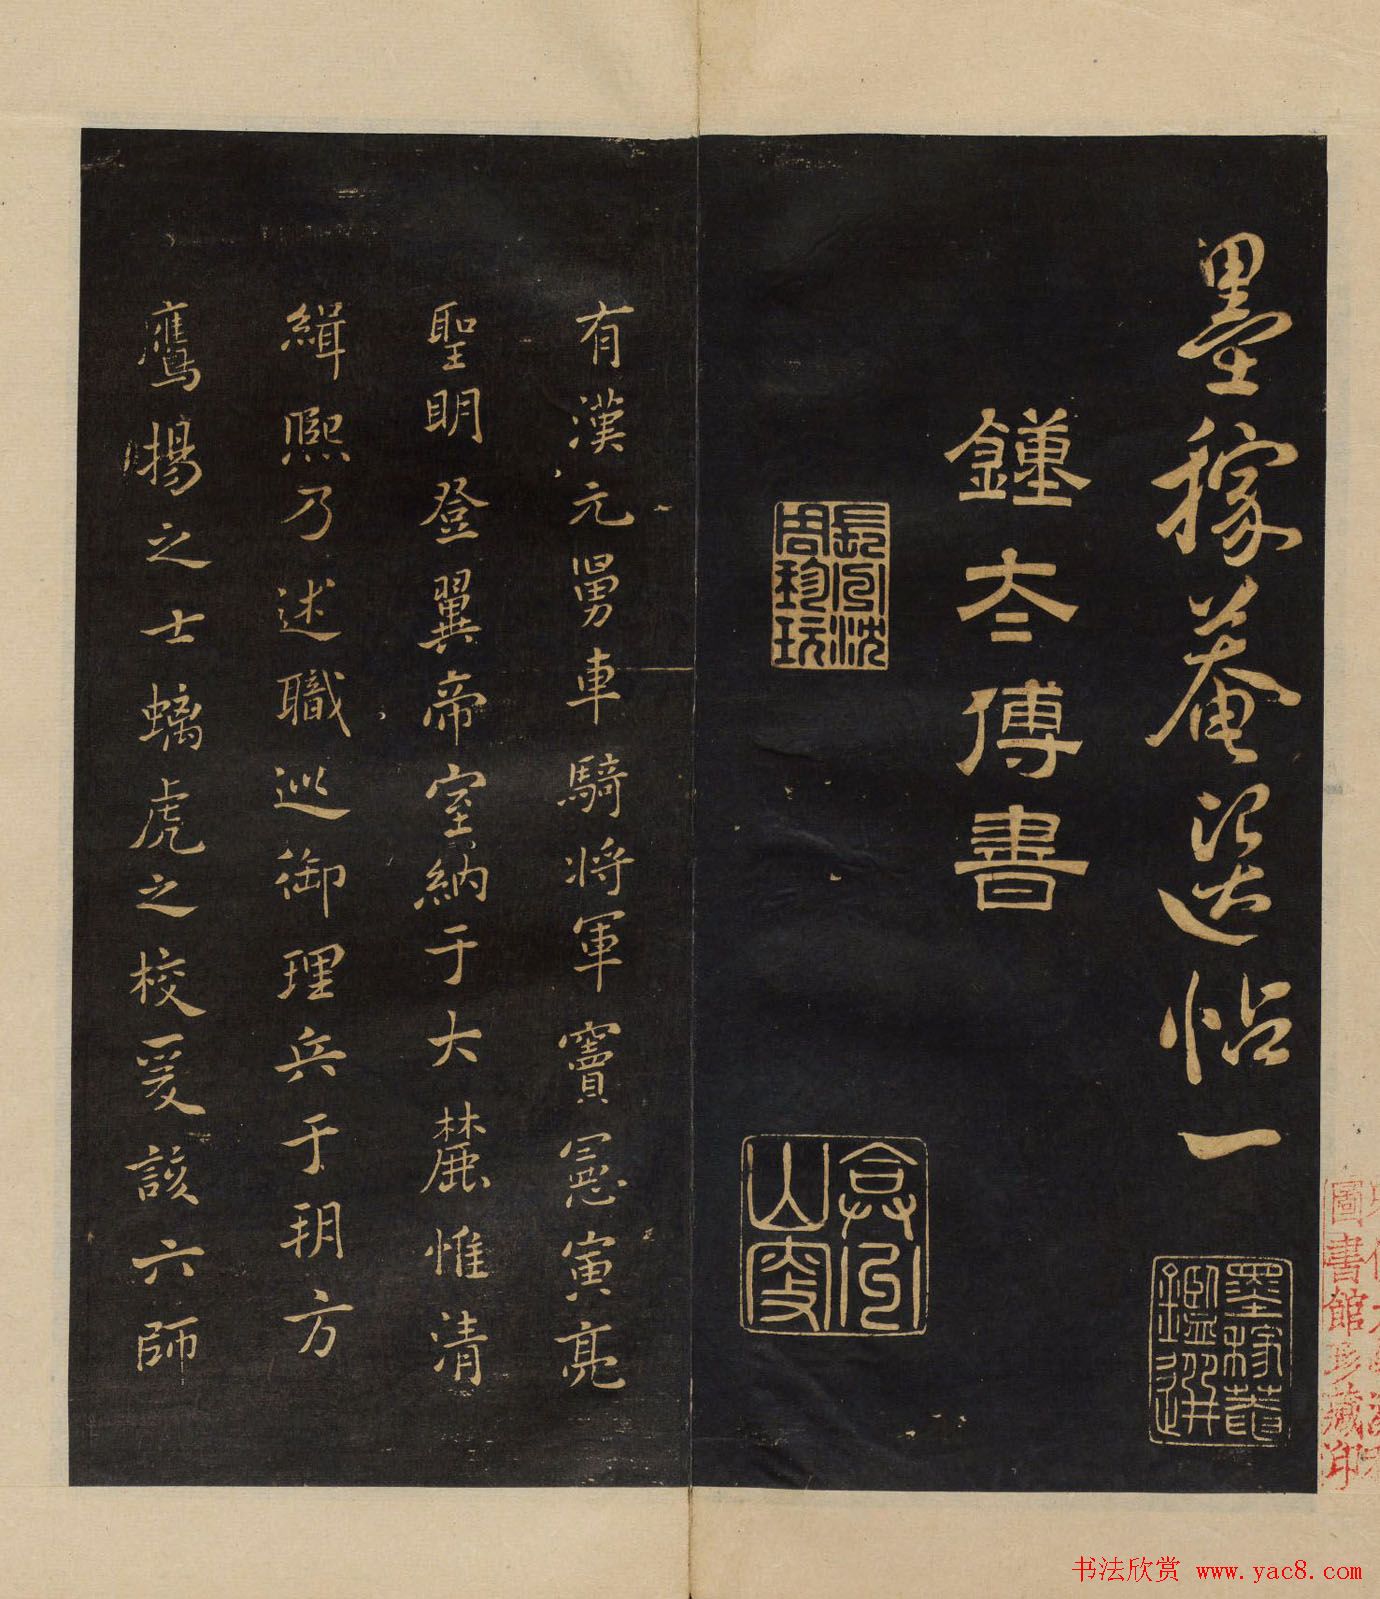 墨稼菴選帖一
鍾太傅書
墨稼菴
鑑選
圖書館珍藏印
有漢元舅車騎将軍竇憲寅亮
聖明登翼帝室納于大麓惟清
緝熙乃述職巡御理兵于朔方
鷹揚之士螭虎之校爰該六師
书法欣赏 www.yac8.com